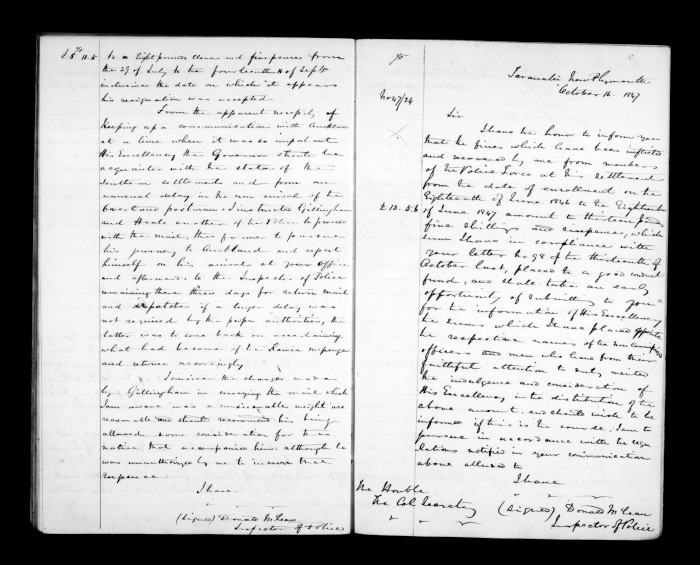 £8 11.5 to a Eight pounds eleven and five pence from
the 29 of July to the fourteenth of Septr
inclusive the date on which it appears
his resignation was accepted
From the apparent necessity of
keeping up a communication with Auckland
at a time when it was so important
His Excellency the Governor should be
acquainted with the state of the
Southern settlement and from an
unusual delay in the non arrival of the
postman I instructed Gillingham
and Heale another of the Police to proceed
with the mail, the former to pursue
his journey to Auckland and report
himself on his arrival at your office
and afterwards to the Inspector of Police
remaining there three days for return mail
and despatches if a longer delay was
not required by the proper authorities, the
latter was to come back on ascertaining
what had become of the Kawia messenger
and returned accordingly
I conceive the charges made
by Gillingham in conveying the mail which
I am aware was a considerable weight are
reasonable and should recommend his being
allowed some consideration for the
native that accompanied him although he
was unauthorized by me to incur that
expense
I have
(Signed) Donald McLean
Inspector of Police
Taranaki New Plymouth
October 16 1847
No 47/24
Sir
I have the honor to inform you
that the fines which have been inflicted
and recovered by me from members
of the Police Force at this settlement
from the date of enrollment on the
Eighteenth of June 1846 to the Eighteenth
£ 13.5.6 of June 1847 amount to thirteen pounds
five shillings and sixpence, which
sum I have in compliance with
your letter No 98 of the thirteenth of
October last, placed to a good conduct
fund, and shall take an early
opportunity of submitting to you
for the information of His Excellency
the sums which I have placed opposite
the respective names of the non commissioned
officers and men who have from their
faithful attention to duty merited
the indulgence and consideration of
His Excellency in the distribution of the
above amount and should wish to be
informed if this is the course I am to
pursue in accordance with the regu
lations notified in your communication
above alluded to
I have
The Honble
The Col. Secretary (Signed) Donald McLean
Inspector of Police